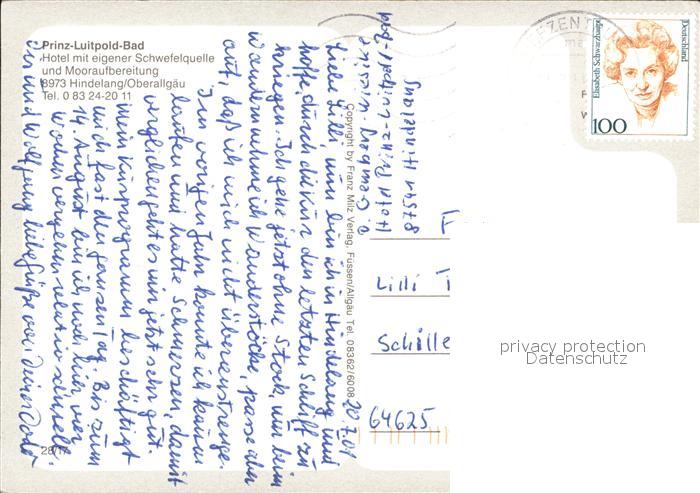 Prinz-Luitpold-Bad
Hotel mit eigener Schwefelquelle
und Mooraufbereitung
8973 Hindelang/Oberallgäu
Tel. 0 83 24-20 11
Liebe Lilli nun bin ich in Hindelang und
hoffe, durch die Kur den letzten Schliff zu
kriegen. Ich gehe jetzt ohne Stock, nur beim
Wandern nehme ich Wanderstöcke, passe aber
auf, daß ich mich nicht überanstrenge.
Im vorigen Jahr konnte ich kaum
laufen und hatte Schmerzen, damit
verglichen geht es mir jetzt sehr gut.
Mein Kurprogramm beschäftigt
mich fast den ganzen Tag. Bis zum
14. August bin ich noch hier, vier
Wochen vergehen relativ schnell.
Dir und Wolfgang liebe Grüße von Deiner
20.7.01
Copyright by Franz Milz Verlag, Füssen/Allgäu Tel. 08362/6008
Hotel Prinz-Luitpold-Bad
87541 Hindelang
Deutschland
Elisabeth Schwarzhaupt
100
Lilli T
Schille
64625
28/17
privacy protection
Datenschutz